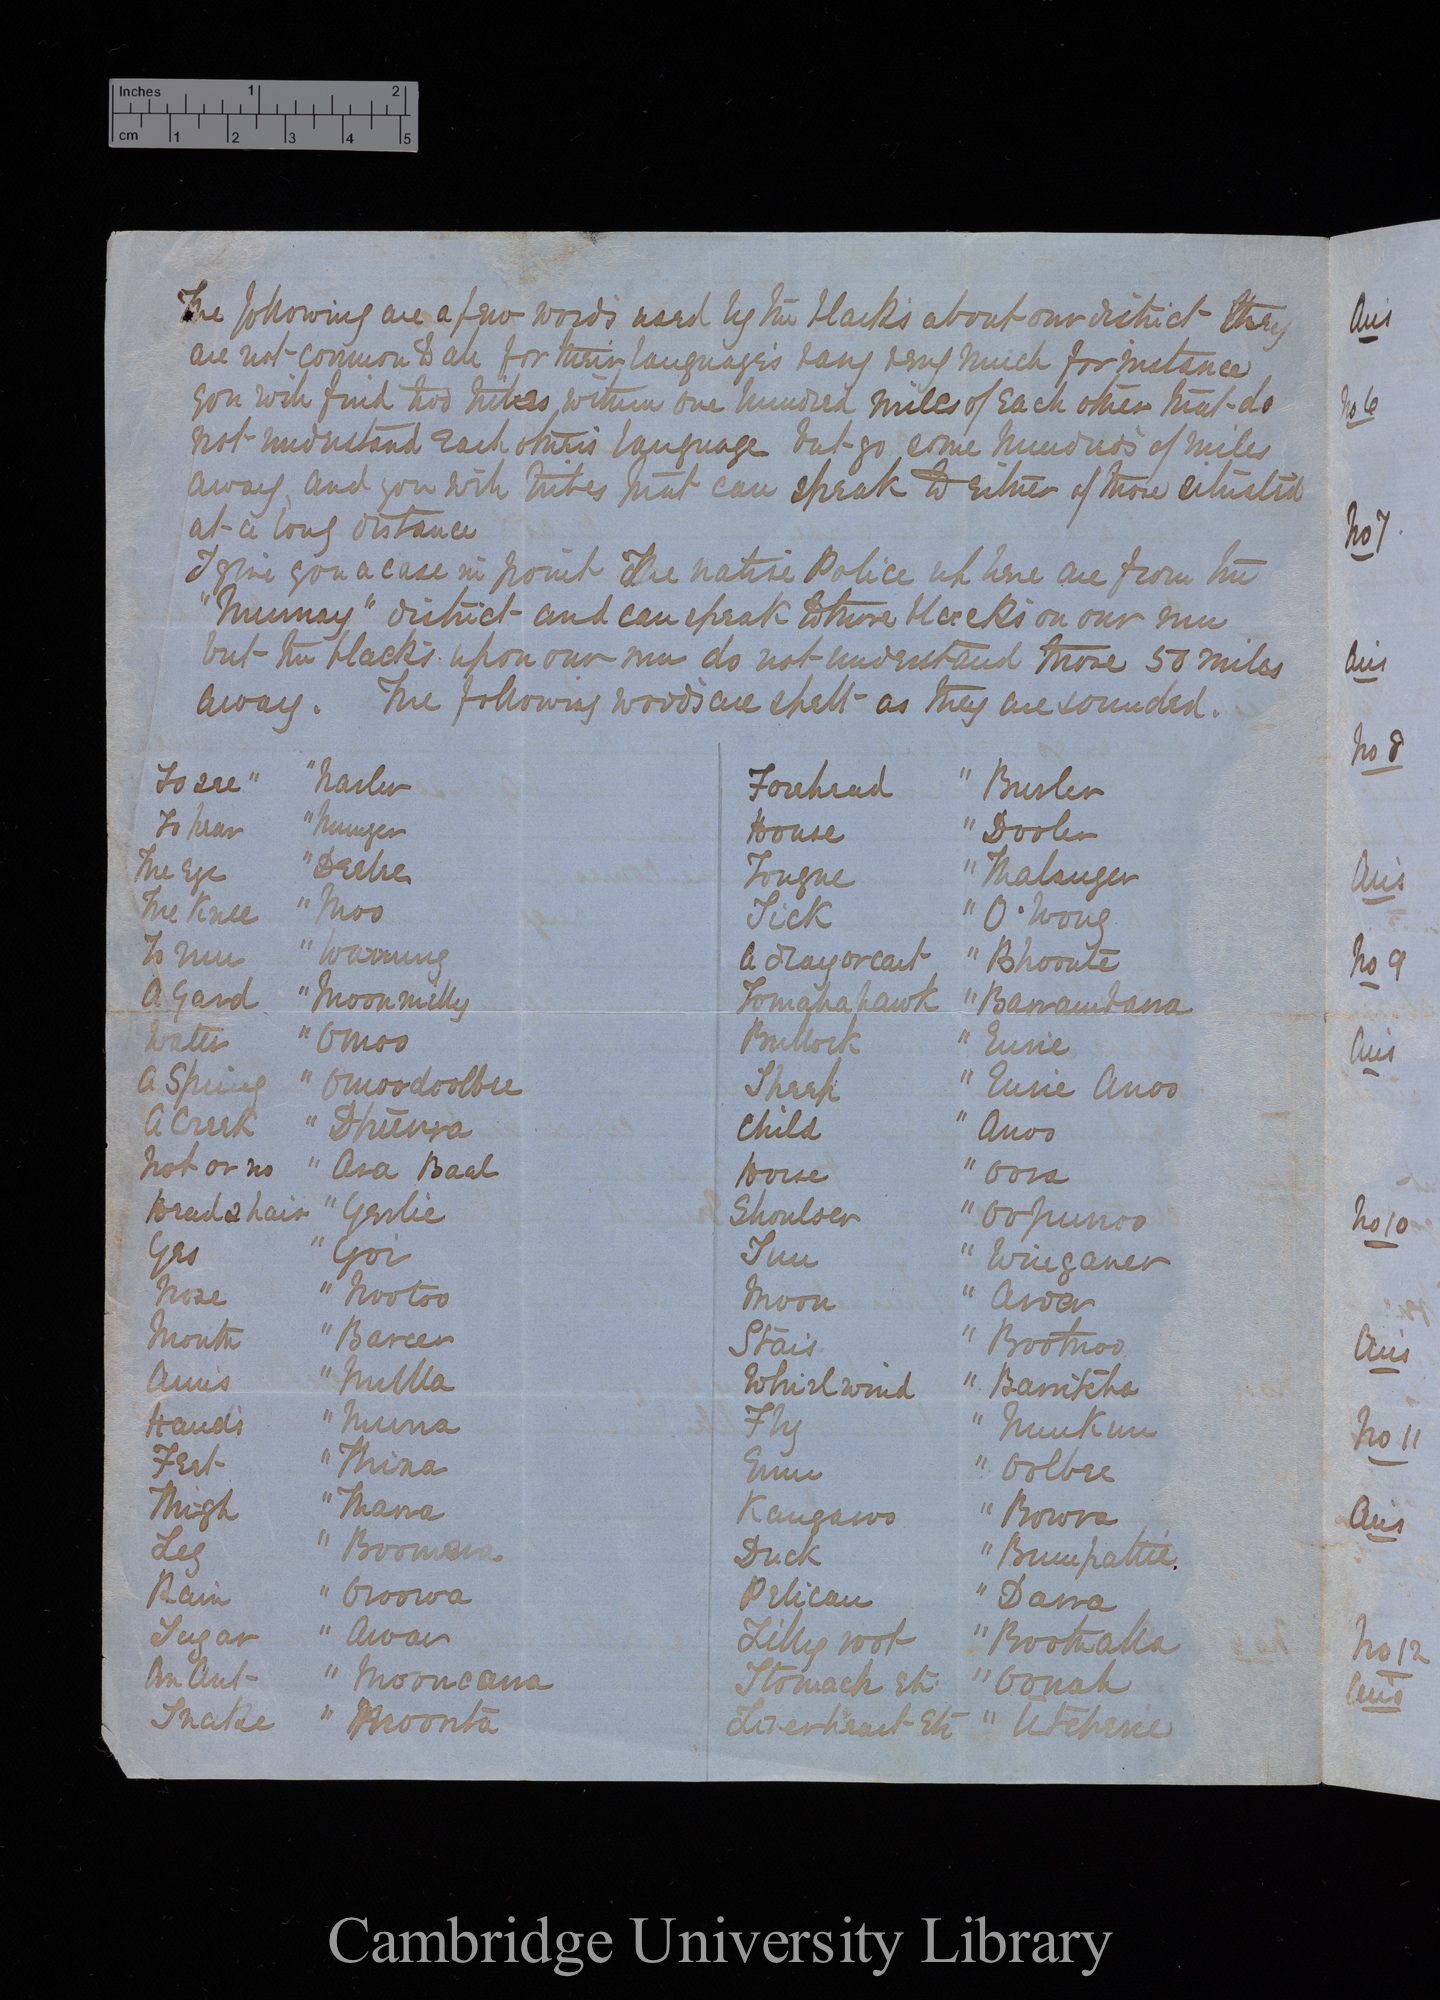 Inches 1 2
cm 1 2 3 4 5
The following are a few words used by the blacks about our district they
are not common to all for their languages vary very much for instance
you will find two tribes within one hundred miles of each other that do
not understand each others language but go some hundreds of miles
away, and you with tribes that can speak to either of those situated
at a long distance
I give you a case in point The native Police up here are from the
"Murray" district and can speak to those blacks on our run
but the blacks upon our run do not understand those 50 miles
away. The following words are spelt as they are sounded.
To see " " Narler
To hear " Nunger
The Eye " Deelee
The Knee " Moo
To run " Warrung
A Gard " Moonmilly
Water " Omoo
A Spring " Omoodoolbee
A Creek " Dheenra
Not or no " Ara Baal
Head & hair " Gerlie
Yes " Yoi
Nose " Nootoo
Mouth " Barcer
Arms " Nulla
Hands " Murra
Feet " Thina
Thigh " Tharra
Leg " Boomera
Rain " Oroowa
Sugar " Awar
An Ant " Mooncarra
Snake " Thoonta
Forehead " Burler
House " Dooler
Tongue " Thalunger
Sick " O'Wong
A dray or cart " Bhoonte
Tomahahawk " Barrambarra
Bullock " Eurie
Sheep " Eurie Anoo
Child " Anoo
Horse " Oora
Shoulder " Oopunoo
Sun " Winganer
Moon " Arder
Stars " Bootnoo
Whirlwind " Barritcha
Fly " Nunkun
Emu " Oolbee
Kangaroo " Bowra
Duck " Bumpattie.
Pelican " Darra
Lilly root " Boothalla
Stomach etc " Oonah
Liver heart etc " Utcherie
Ans
No 6
No 7.
Ans
No 8
Ans
No 9
Ans
No 10
Ans
No 11
Ans
No 12
Ans
Cambridge University Library